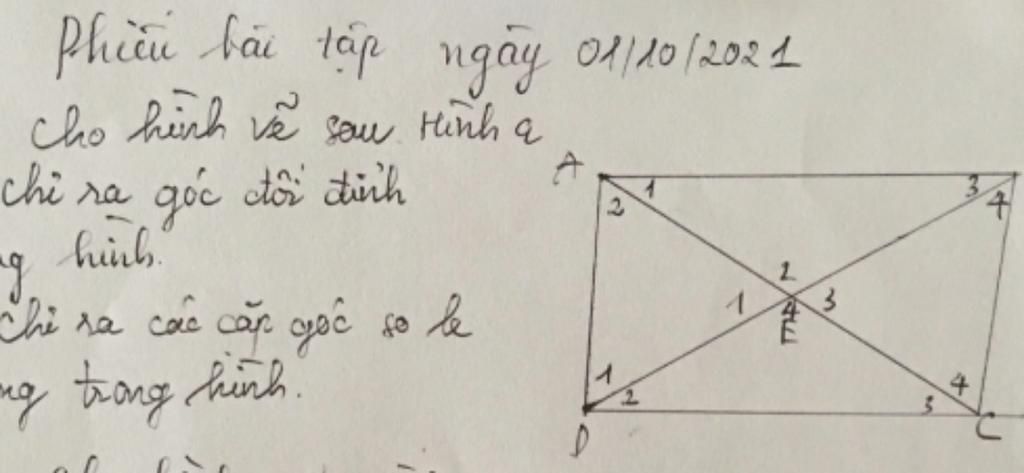 Phiếu bài tập ngày 01/10/2021
Cho hình vẽ sau Hình a
A
chỉ ra góc đối đỉnh
1 3
2 4
hình.
2
1 3
4
E
chỉ ra các cặp góc so le
1 4
trong hình.
2 3
D C